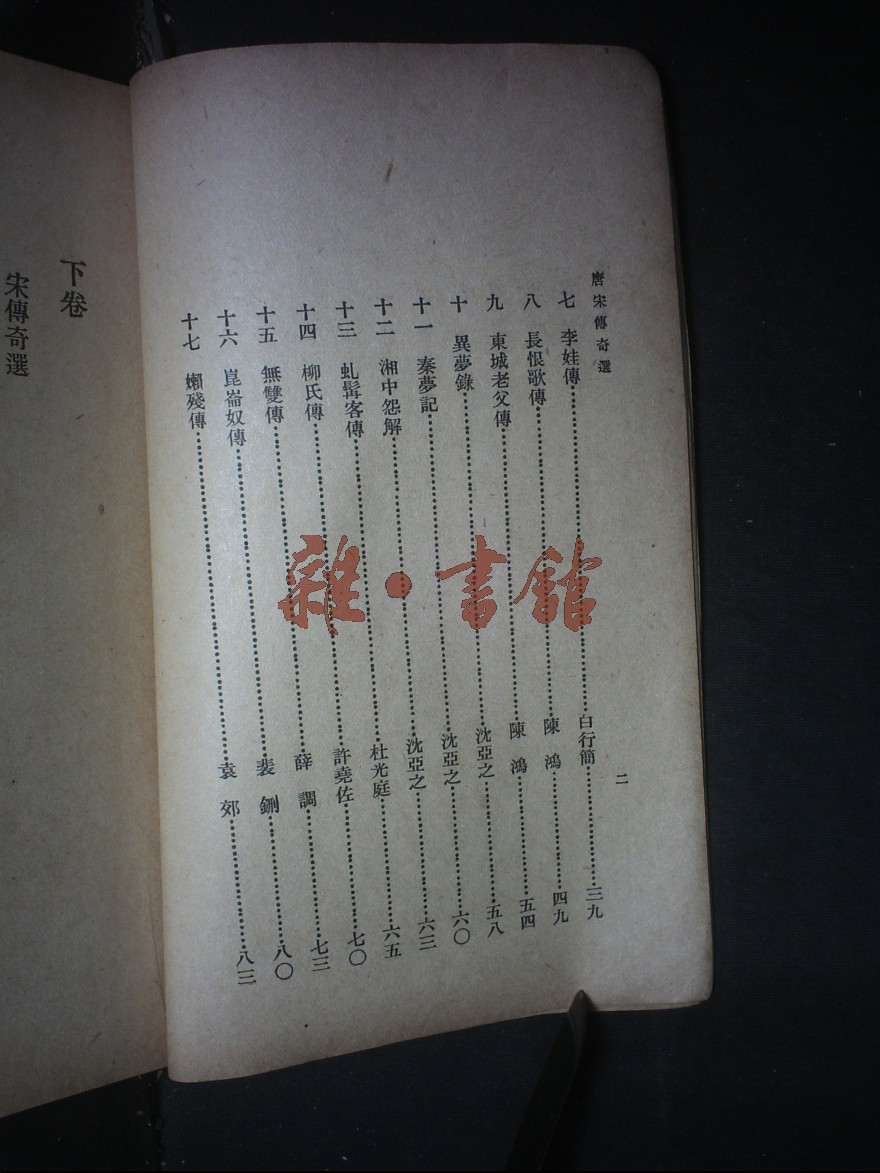 唐宋傳奇選
二
七 李娃傳……白行簡……三九
八 長恨歌傳……陳 鴻……四九
九 東城老父傳……陳 鴻……五四
十 異夢錄……沈亞之……五八
十一 秦夢記……沈亞之……六〇
十二 湘中怨解……沈亞之……六三
十三 虬髯客傳……杜光庭……六五
十四 柳氏傳……許堯佐……七〇
十五 無雙傳……薛 調……七三
十六 崑崙奴傳……裴 鉶……八〇
十七 嬾殘傳……袁 郊……八三
下卷
宋傳奇選
雜·書館